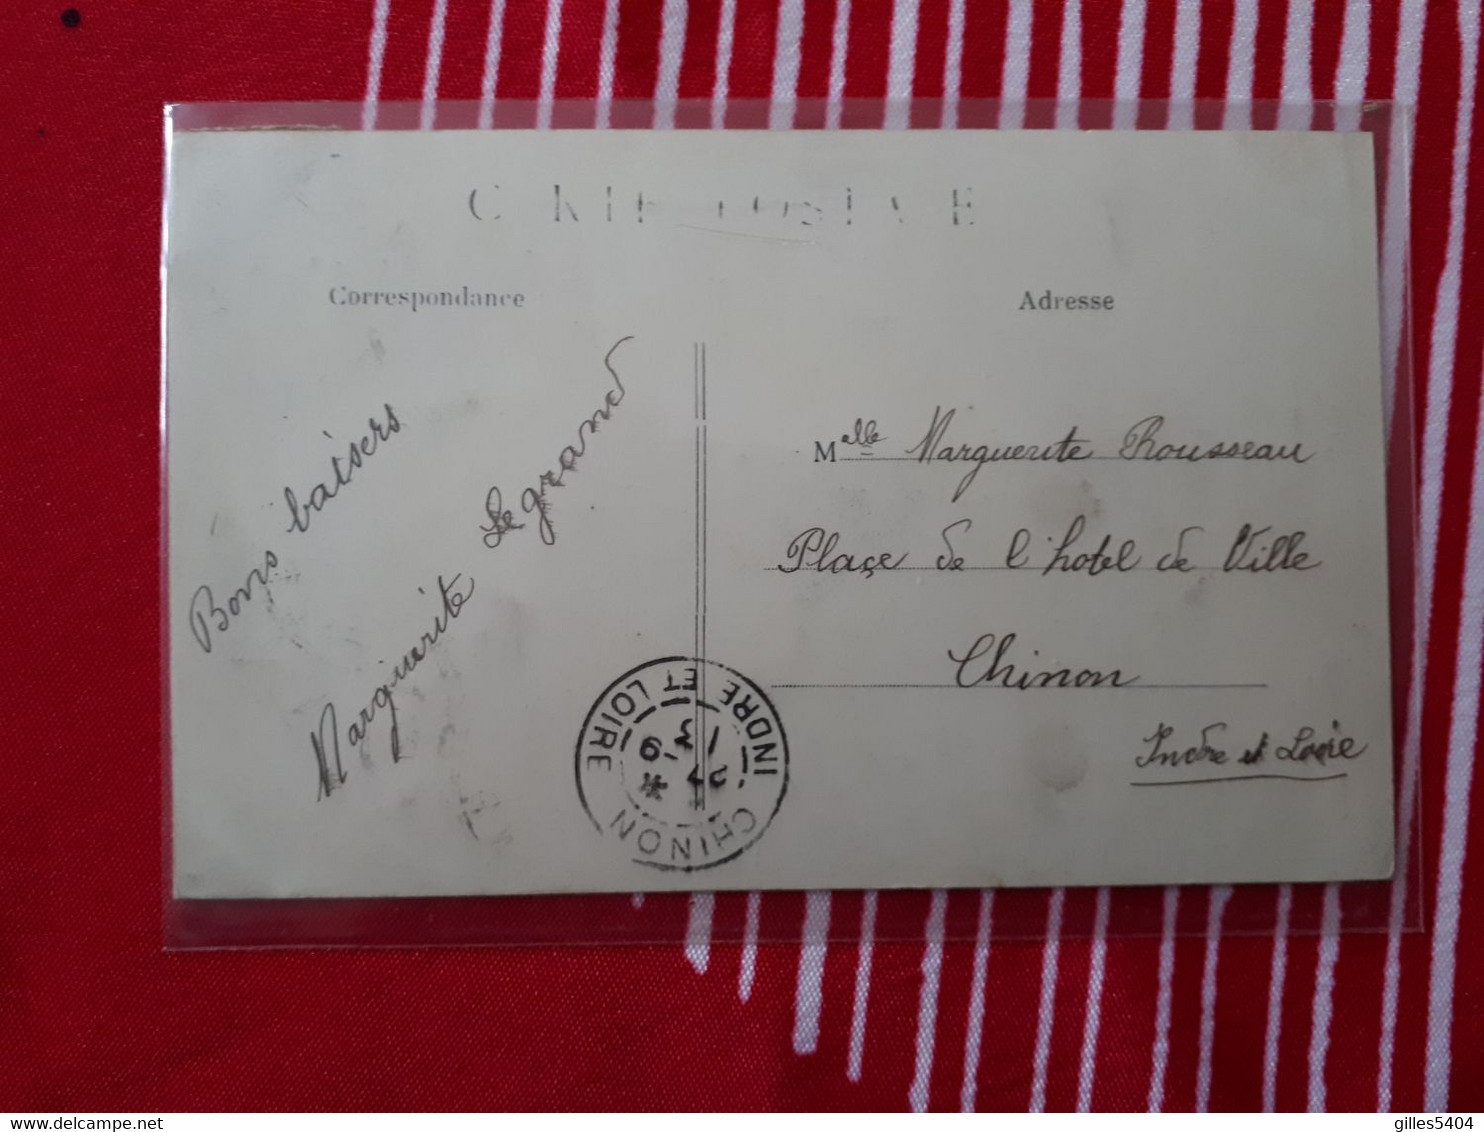 CARTE POSTALE
Correspondance
Adresse
Bons baisers
Marguerite Legrand
Melle Marguerite Rousseau
Plaçe de l'hotel de Ville
Chinon
Indre et Loire
CHINON
INDRE ET LOIRE
gilles5404